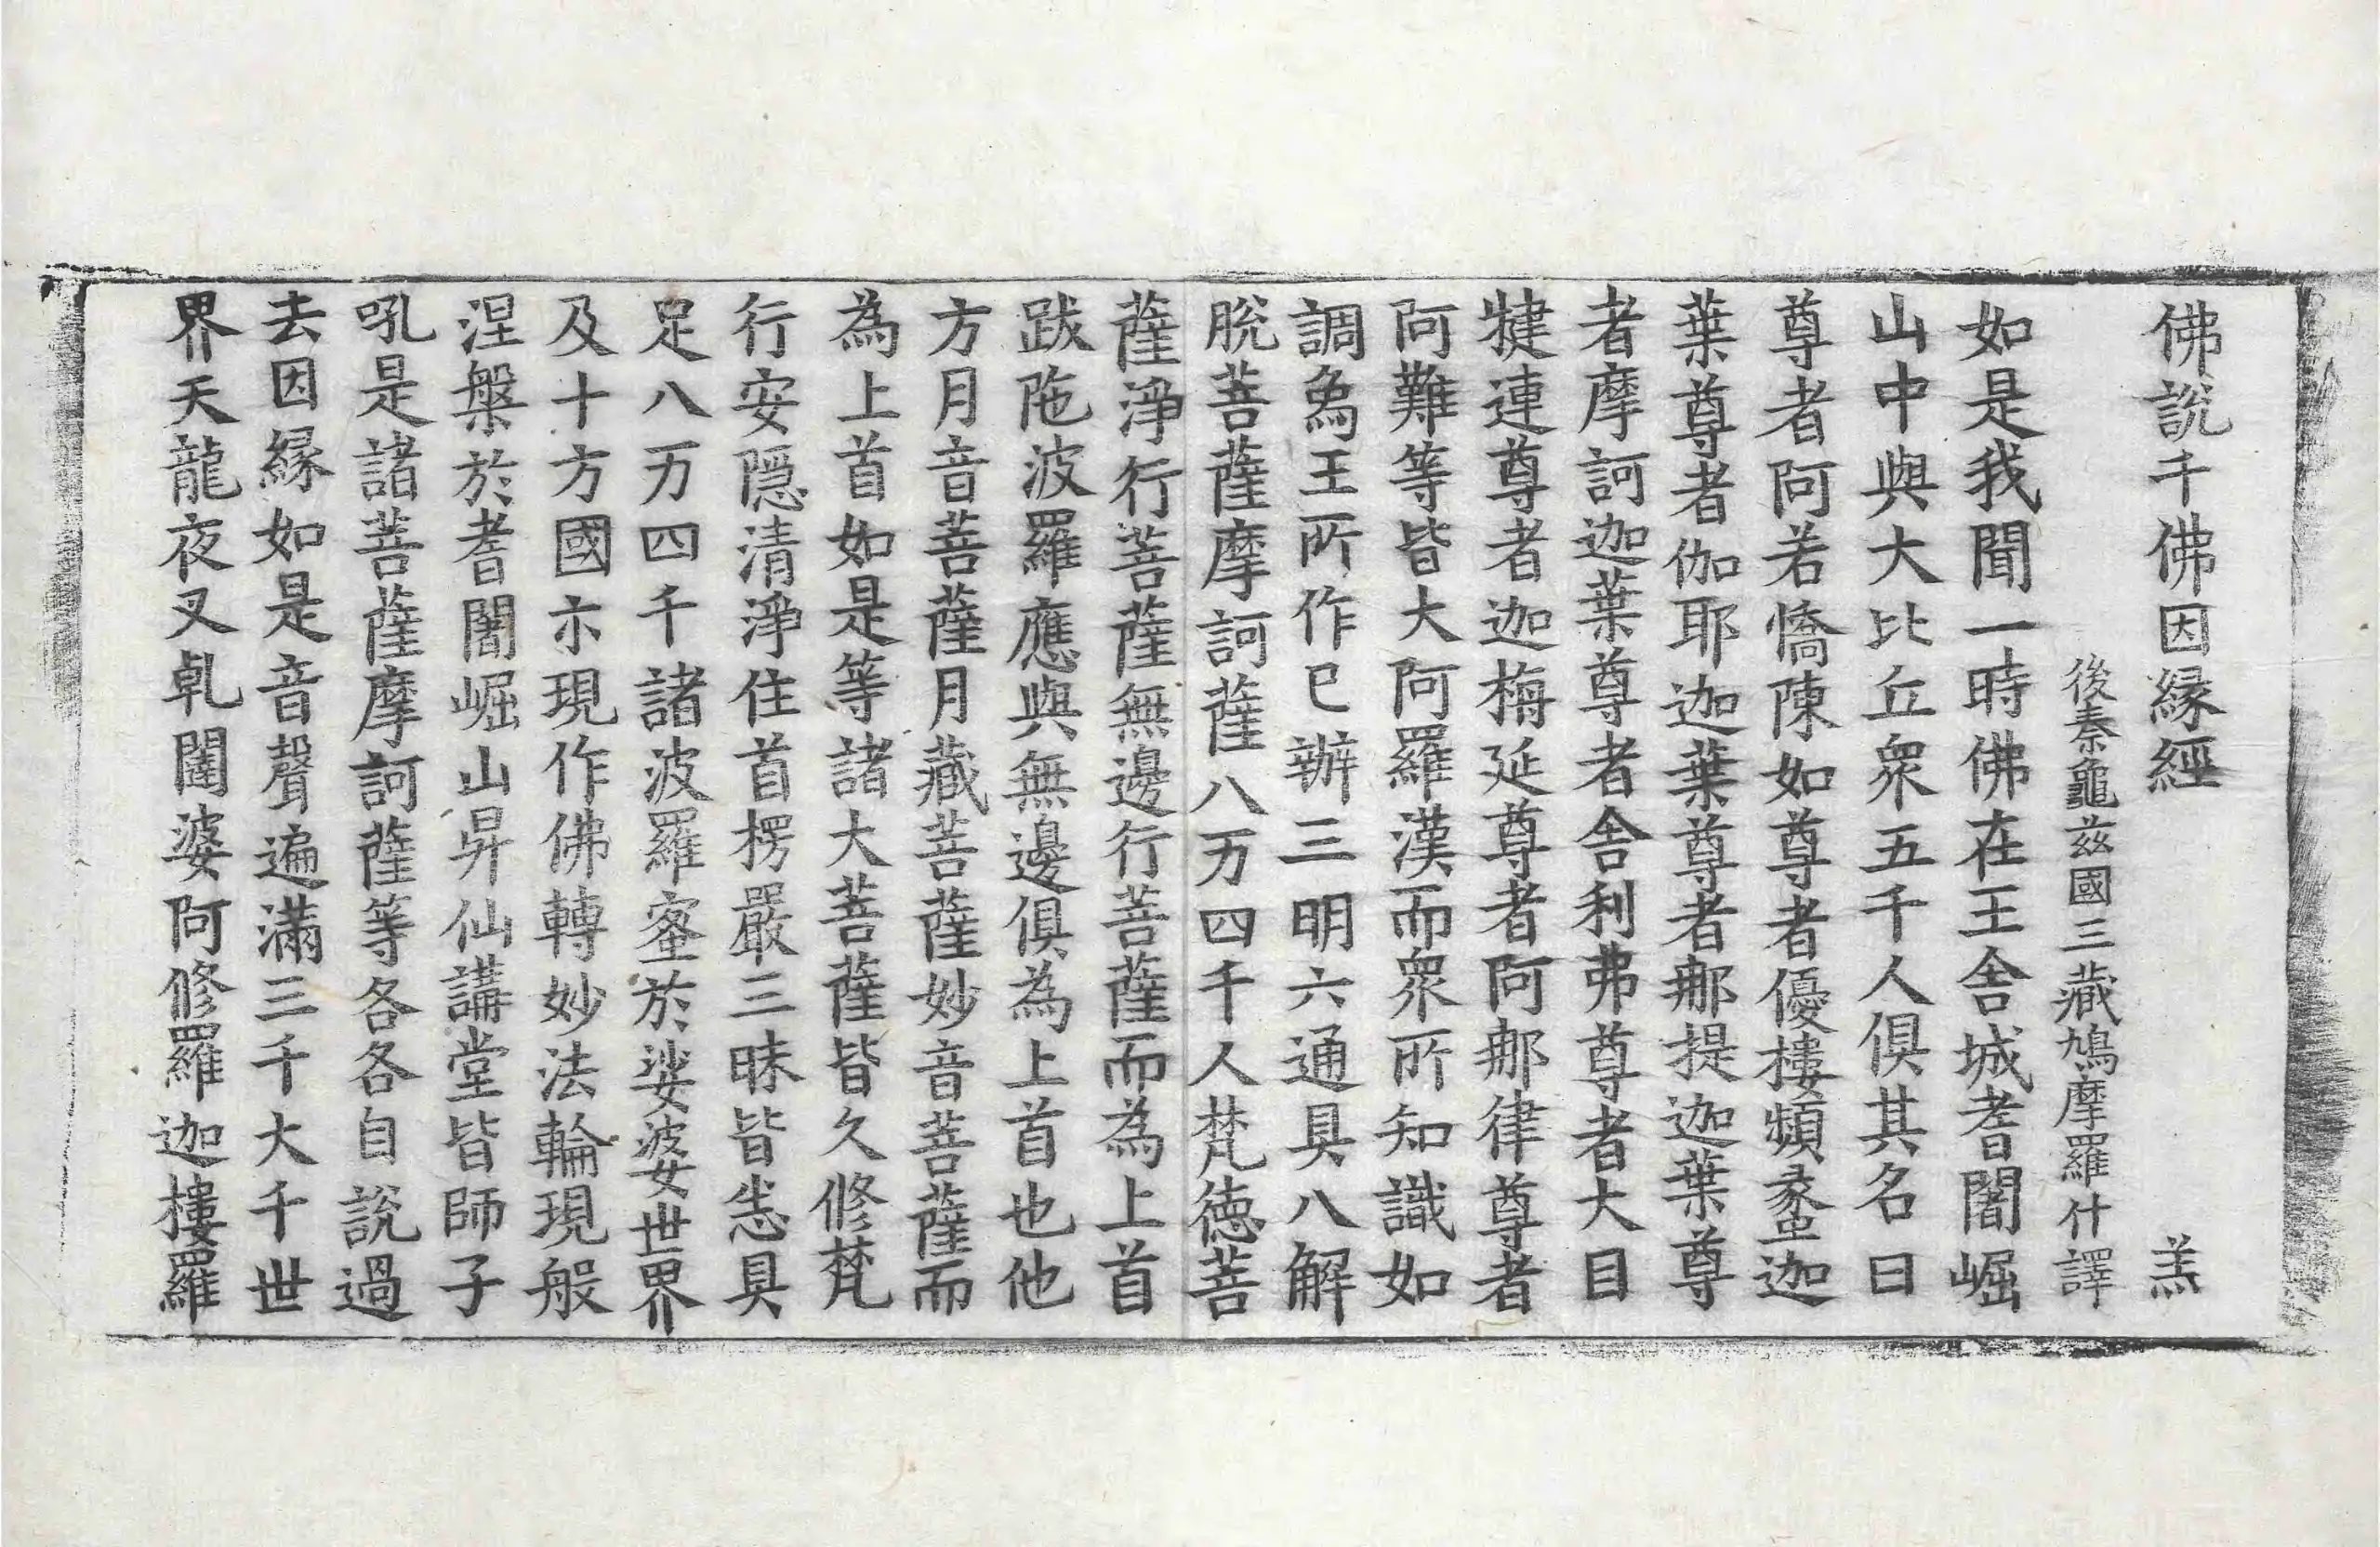 佛說千佛因縁經 羔
後秦龜茲國三藏鳩摩羅什譯
如是我聞一時佛在王舍城耆闍崛
山中與大比丘衆五千人俱其名曰
尊者阿若憍陳如尊者優樓頻蠡迦
葉尊者伽耶迦葉尊者那提迦葉尊
者摩訶迦葉尊者舍利弗尊者大目
犍連尊者迦栴延尊者阿那律尊者
阿難等皆大阿羅漢而衆所知識如
調象王所作已辦三明六通具八解
脫菩薩摩訶薩八万四千人梵德菩
薩淨行菩薩無邊行菩薩而為上首
跋陁波羅應與無邊俱為上首也他
方月音菩薩月藏菩薩妙音菩薩而
為上首如是等諸大菩薩皆久修梵
行安隱清淨住首楞嚴三昧皆悉具
足八万四千諸波羅蜜於娑婆世界
及十方國示現作佛轉妙法輪現般
涅槃於耆闍崛山昇仙講堂皆師子
吼是諸菩薩摩訶薩等各各自說過
去因縁如是音聲遍滿三千大千世
界天龍夜叉乹闥婆阿修羅迦樓羅